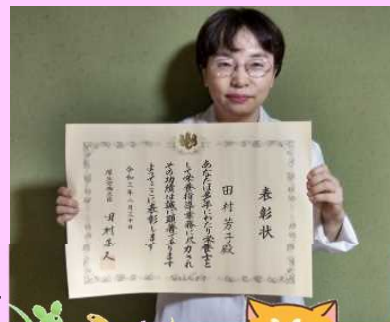 表彰状
田村芳子殿
あなたは多年にわたり栄養士と
して栄養指導業務に尽力され
その功績は誠に顕著であります
よってここに表彰します
令和三年二月二十日
厚生労働大臣 田村憲久